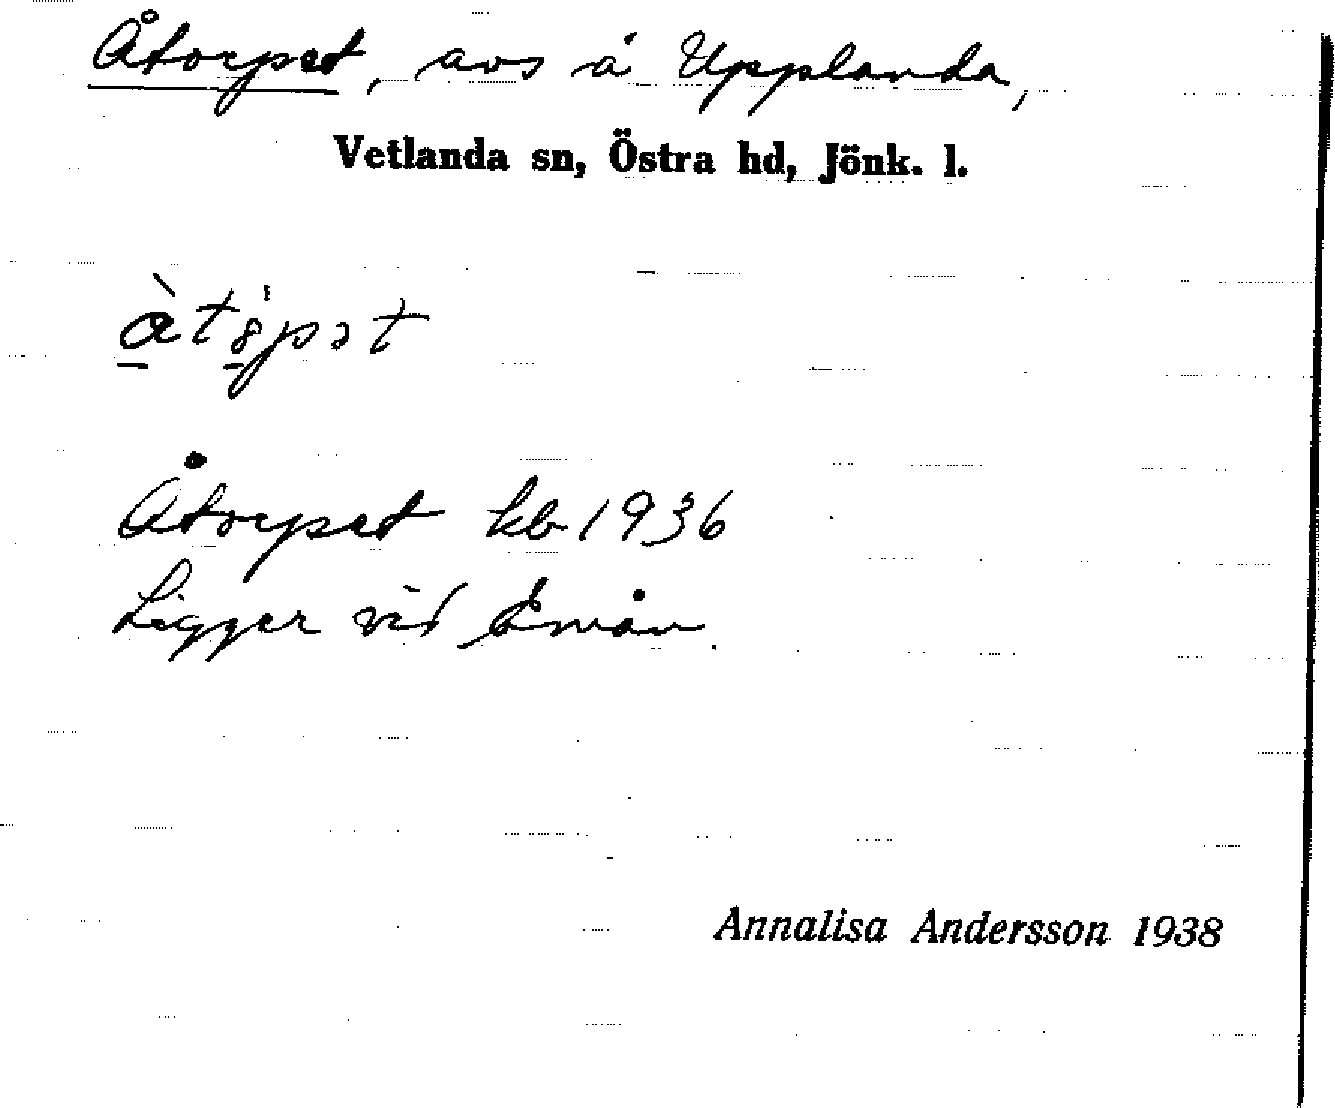 Åtorpet, avs å Upplanda,
Vetlanda sn, Östra hd, Jönk. l.
Åtorpet kb 1936
Ligger vid Emån.
Annalisa Andersson 1938